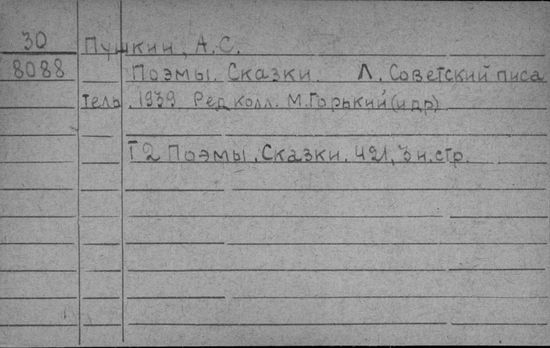 30
8088
Пушкин, А.С.
Поэмы. Сказки. Л. Советский писа
тель, 1939 Ред колл. М.Горький(и др)
Т2 Поэмы. Сказки. 421, 3 н.стр.